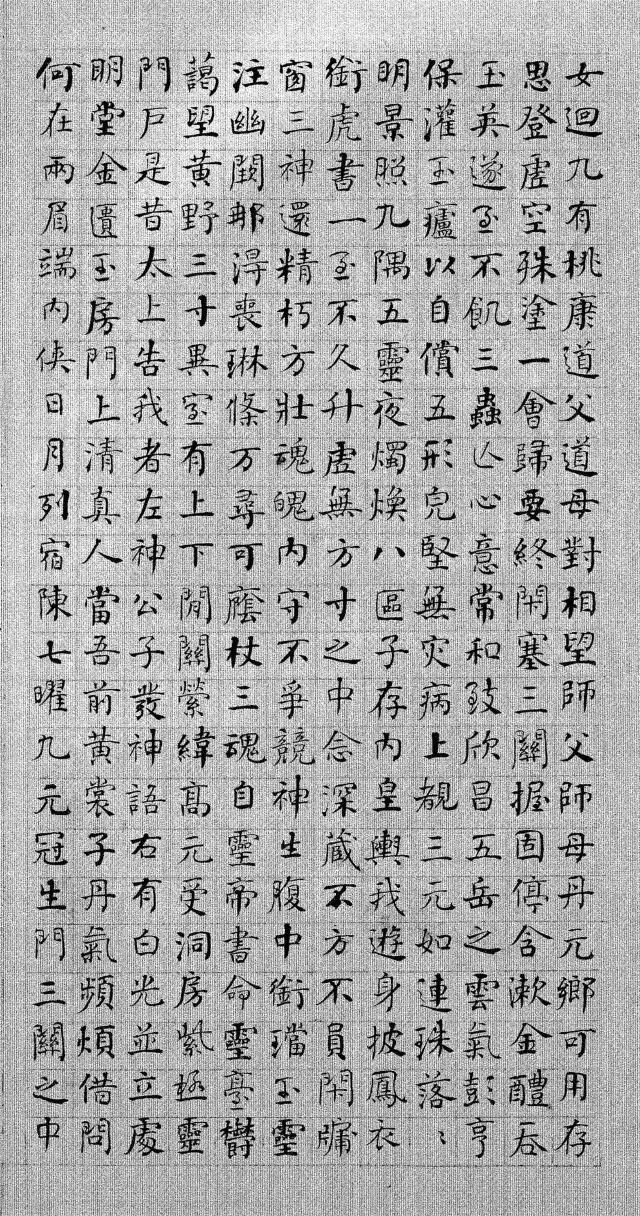 女迴九有桃康道父道母對相望師父師母丹元鄉可用存
思登虛空殊塗一會歸要終閇塞三關握固停含漱金醴吞
玉英遂至不飢三蟲亾心意常和致欣昌五岳之雲氣彭亨
保灌玉廬以自償五形完堅無灾病上覩三元如連珠落〻
明景照九隅五靈夜燭煥八區子存內皇輿我遊身披鳳衣
銜虎書一至不久升虛無方寸之中念深藏不方不員閇牖
窗三神還精朽方壯魂魄內守不爭競神生腹中銜璫玉靈
注幽闕那淂喪琳條万尋可廕杖三魂自靈帝書命靈臺欝
藹望黃野三寸異室有上下閒關縈緯高元受洞房紫極靈
門戶是昔太上告我者左神公子發神語右有白光並立處
明堂金匱玉房門上清真人當吾前黃裳子丹氣頻煩借問
何在兩眉端內俠日月列宿陳七曜九元冠生門三關之中